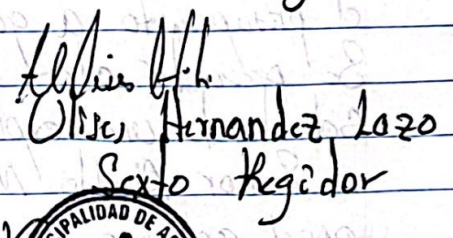 Ulises Hernandez Lazo
Sexto Regidor
IPALIDAD DE A